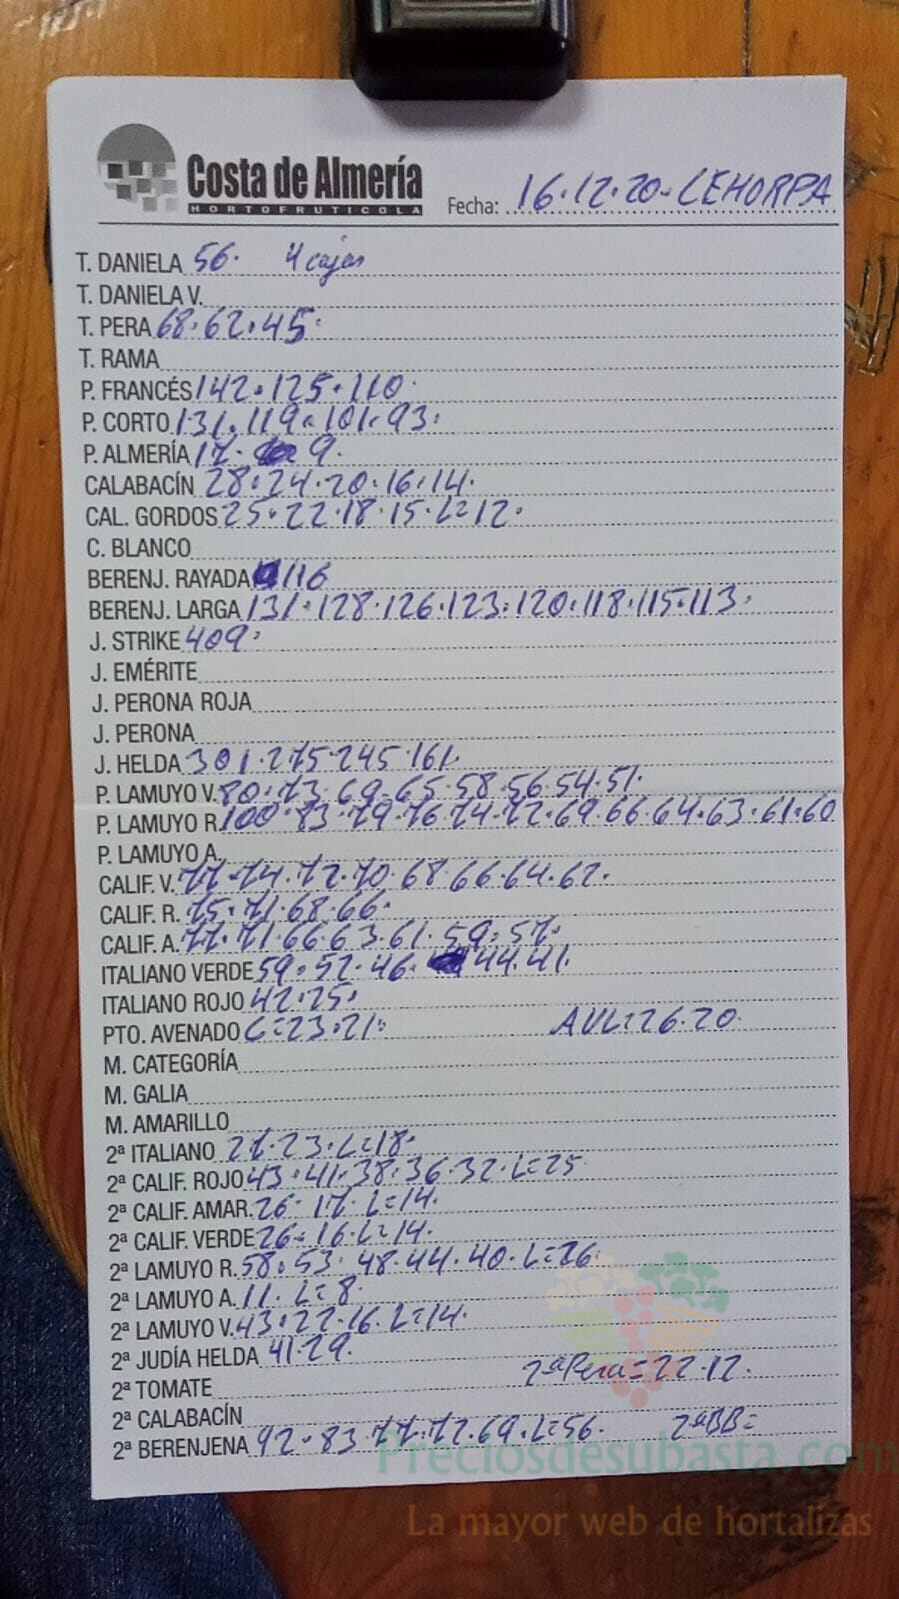 Costa de Almería
HORTOFRUTICOLA
Fecha: 16.12.20-LEHORPA
T. DANIELA 56. 4 cajas
T. DANIELA V.
T. PERA 68.62.45.
T. RAMA
P. FRANCÉS 142.125.110.
P. CORTO 131.119.101.93.
P. ALMERÍA 17. 9.
CALABACÍN 28.24.20.16.14.
CAL. GORDOS 25.22.18.15.L=12.
C. BLANCO
BERENJ. RAYADA 116
BERENJ. LARGA 131.128.126.123.120.118.115.113.
J. STRIKE 409.
J. EMÉRITE
J. PERONA ROJA
J. PERONA
J. HELDA 301.275.245.161.
P. LAMUYO V. 80.73.69.65.58.56.54.51.
P. LAMUYO R. 100.83.79.76.74.72.69.66.64.63.61.60
P. LAMUYO A.
CALIF. V. 77.74.72.70.68.66.64.62.
CALIF. R. 75.71.68.66.
CALIF. A. 77.71.66.63.61.59.57.
ITALIANO VERDE 59.52.46. 44.41.
ITALIANO ROJO 42.25.
PTO. AVENADO C=23.21. AVL=26.20.
M. CATEGORÍA
M. GALIA
M. AMARILLO
2ª ITALIANO 27.23.L=18.
2ª CALIF. ROJO 43.41.38.36.32.L=25
2ª CALIF. AMAR. 26.17.L=14.
2ª CALIF. VERDE 26.16.L=14.
2ª LAMUYO R. 58.53.48.44.40.L=26.
2ª LAMUYO A. 11.L=8.
2ª LAMUYO V. 43.22.16.L=14.
2ª JUDÍA HELDA 41.29.
2ª TOMATE 2ª Pera=22.12.
2ª CALABACÍN
2ª BERENJENA 92.83.77.72.69.L=56. 2ªBB=
Preciosdesubasta.com
La mayor web de hortalizas